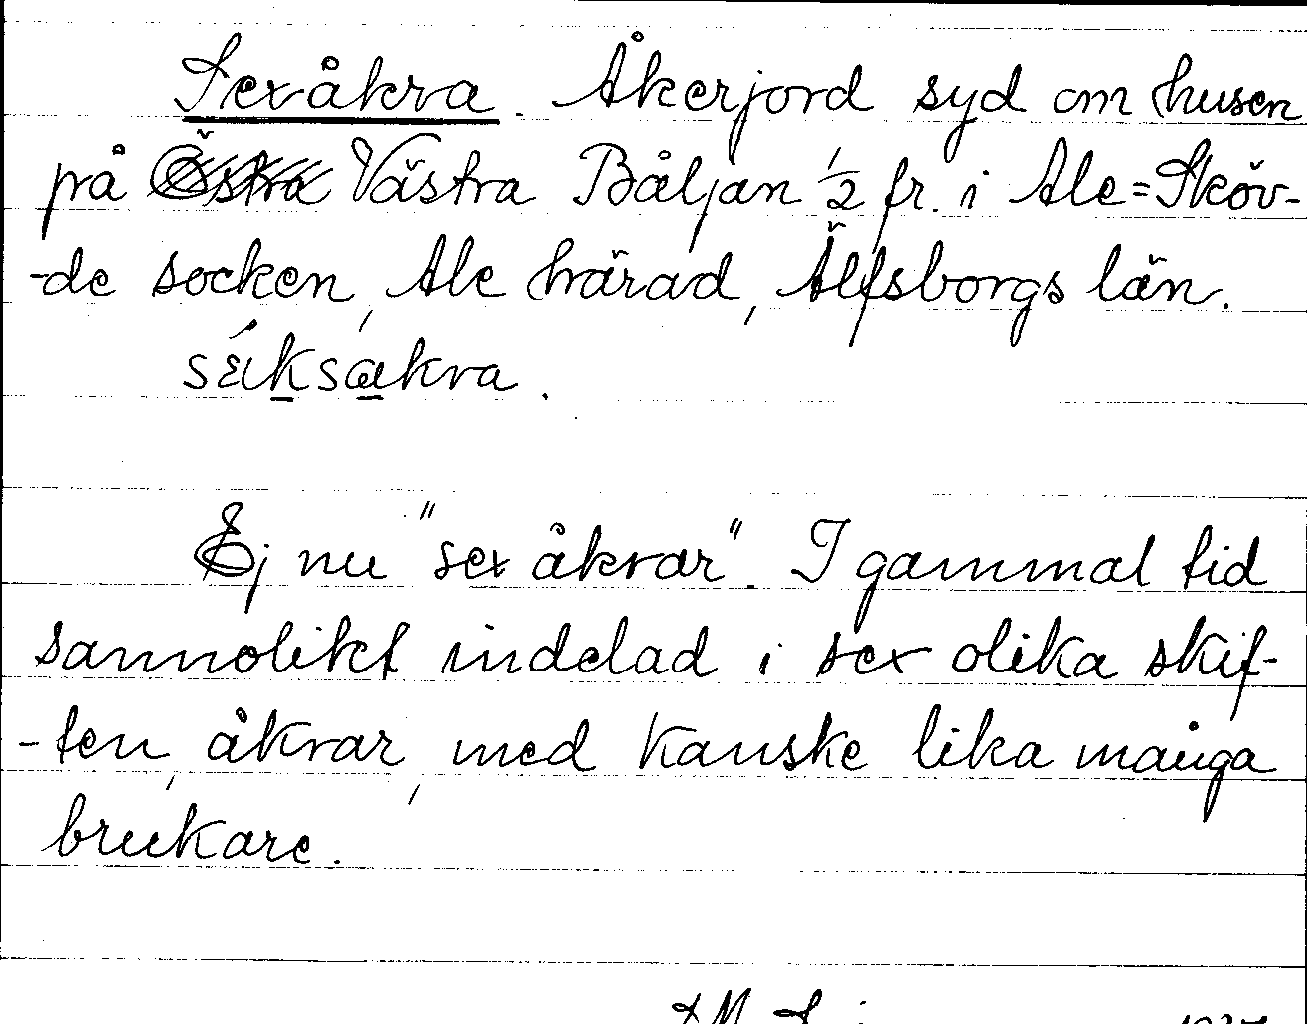 Sexåkra. Åkerjord syd om husen
på Västra Båljan 1/2 fr. i Ale=Sköv-
-de socken, Ale härad, Älfsborgs län.
Ej nu "sex åkrar". I gammal tid
sannolikt indelad i sex olika skif-
-ten, åkrar, med kanske lika många
brukare.